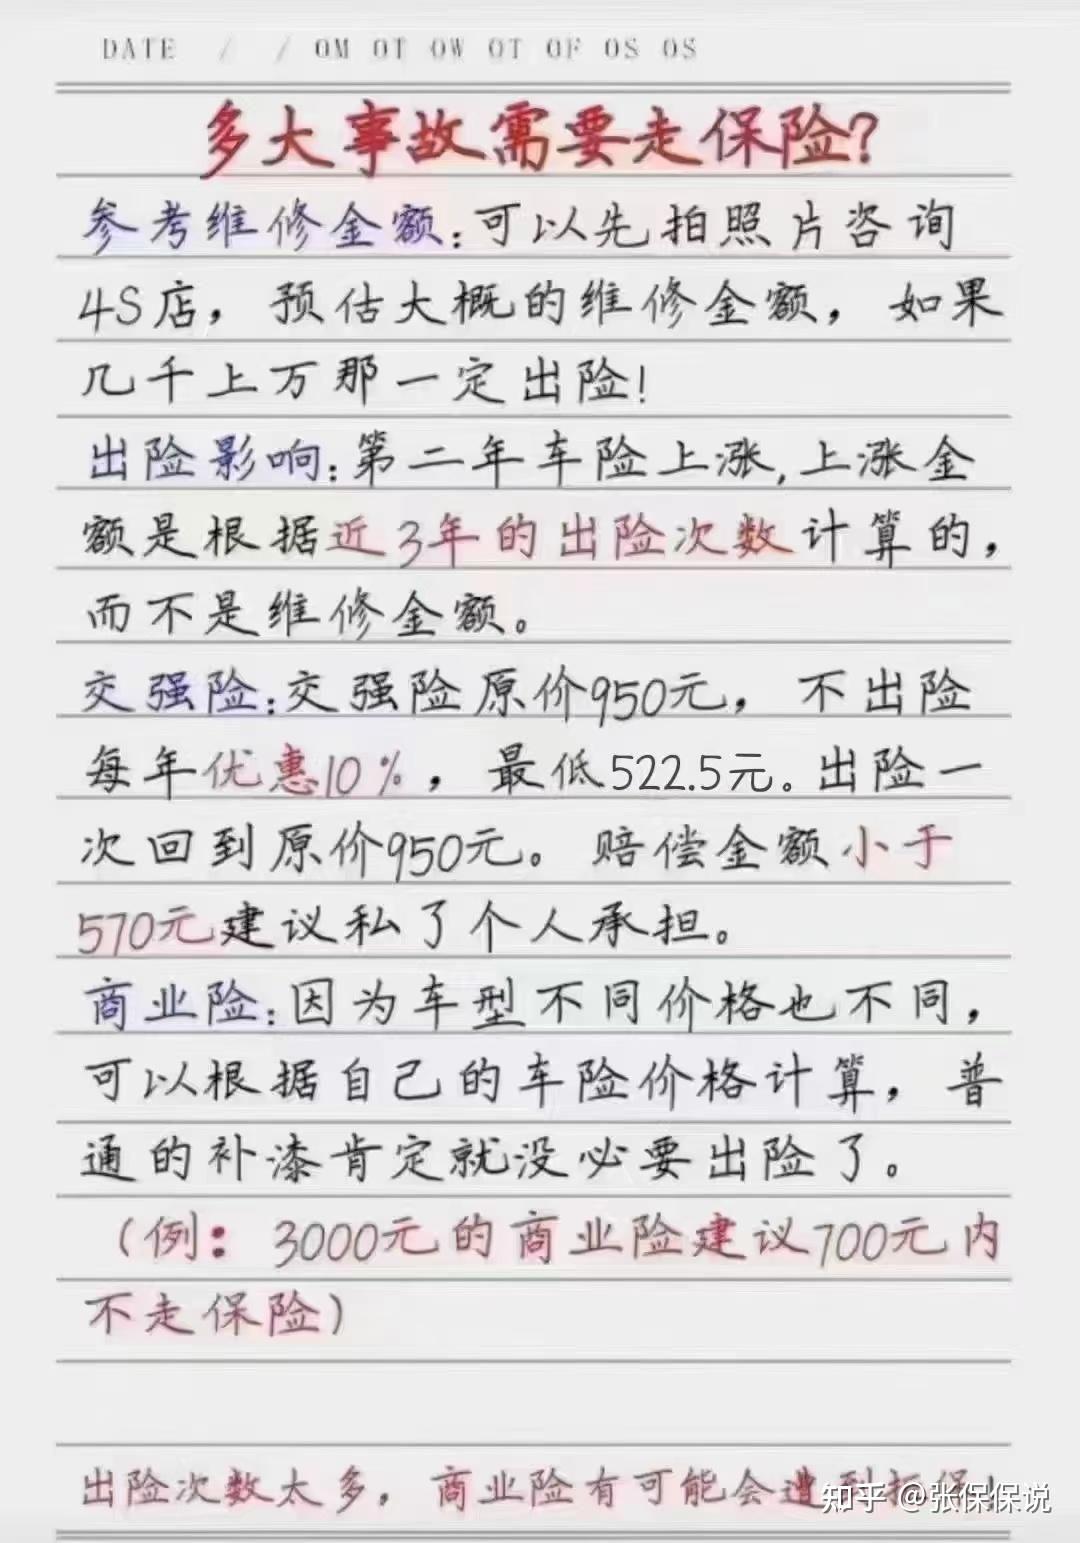 DATE / / OM OT OW OT OF OS OS
多大事故需要走保险?
参考维修金额:可以先拍照片咨询
4S店，预估大概的维修金额，如果
几千上万那一定出险!
出险影响:第二年车险上涨,上涨金
额是根据近3年的出险次数计算的，
而不是维修金额。
交强险:交强险原价950元，不出险
每年优惠10%，最低522.5元。出险一
次回到原价950元。赔偿金额小于
570元建议私了个人承担。
商业险:因为车型不同价格也不同，
可以根据自己的车险价格计算，普
通的补漆肯定就没必要出险了。
(例：3000元的商业险建议700元内
不走保险)
出险次数太多，商业险有可能会遭到拒保!
知乎 @张保保说